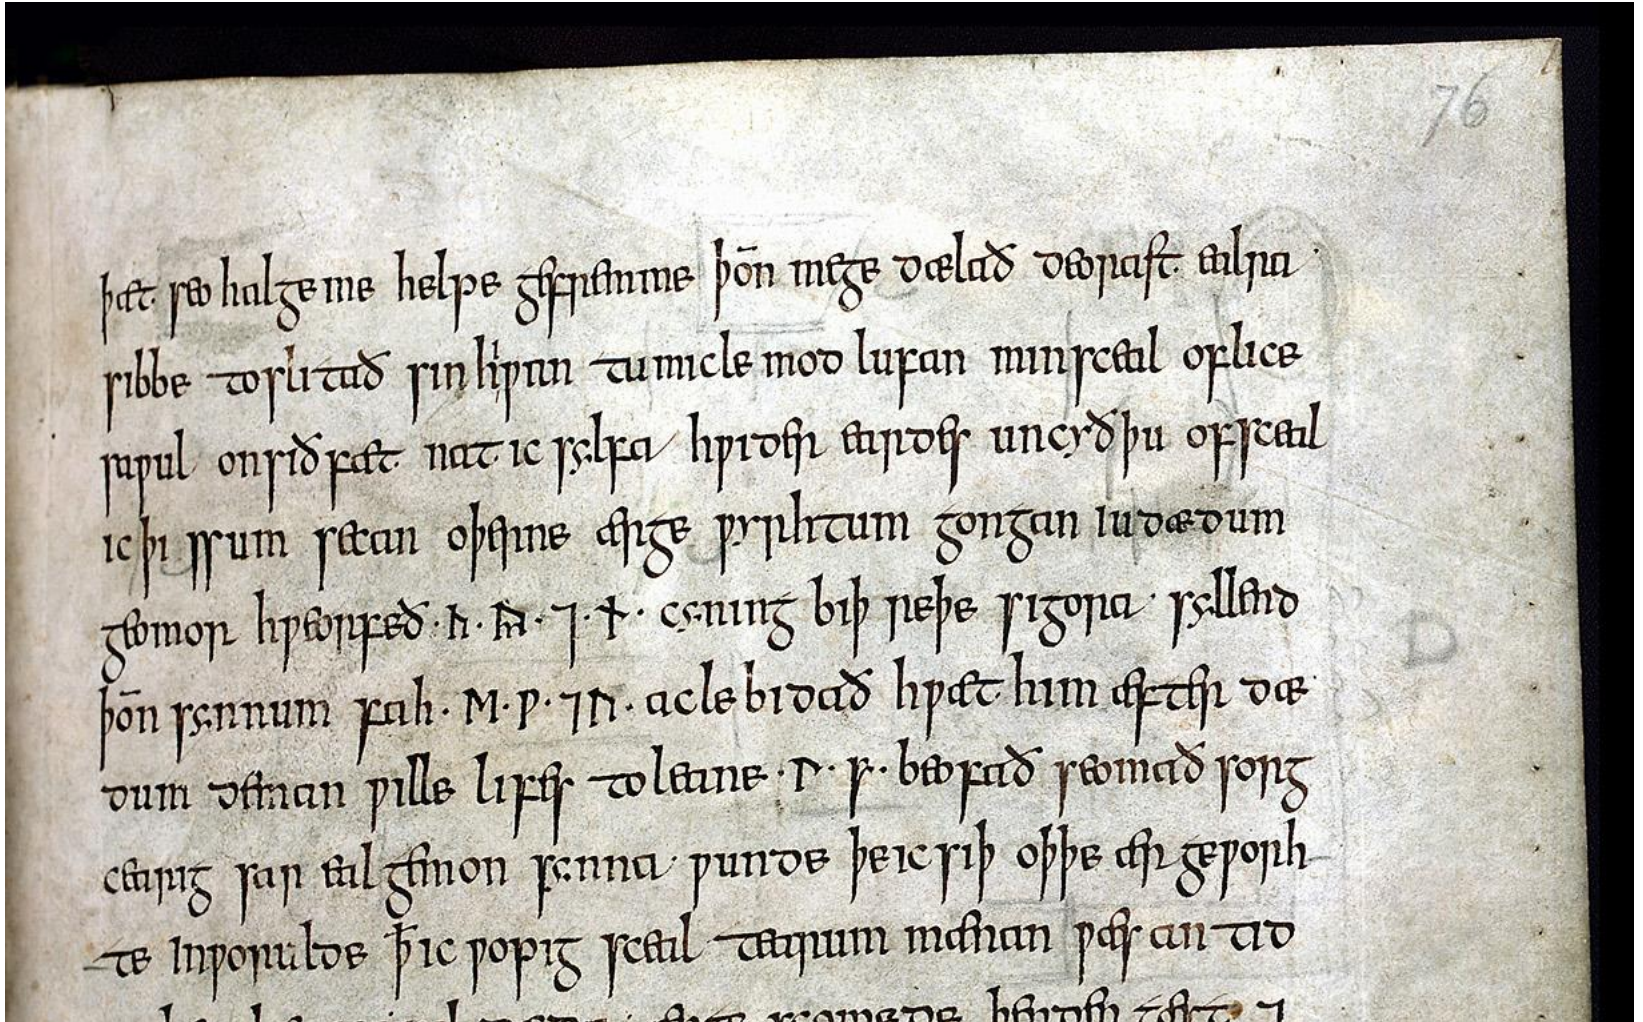 76
þæt seo halge me helpe gefremme þoñ me ge dælað deorast ealra
sibbe toslitað sinhiƿan tu micle mod lufan min sceal of lice
saƿul on sið fæt nat ic sẏlfa hƿider eardes uncẏðþu of sceal
ic þissum secan oþerne ærge ƿyrhtum gongan iudædum
geomor hƿeorfeð · ᚳ · ᚣ · ⁊ · ᚾ · cẏning biþ reþe sigora · sẏllend
þoñ sẏnnum fah · ᛖ · ƿ · ⁊ ᚢ · acle bidað hƿæt him æfter dæ
dum deman ƿille lifes to leane · ᛚ · ᚠ · beofað seomað sorg
cearig sar eal gemon sẏnna ƿunde þe ic siþ oþþe ær geƿorh
te in ƿorulde ꝥ ic ƿopig sceal tearum mænan ƿæs an tid
D